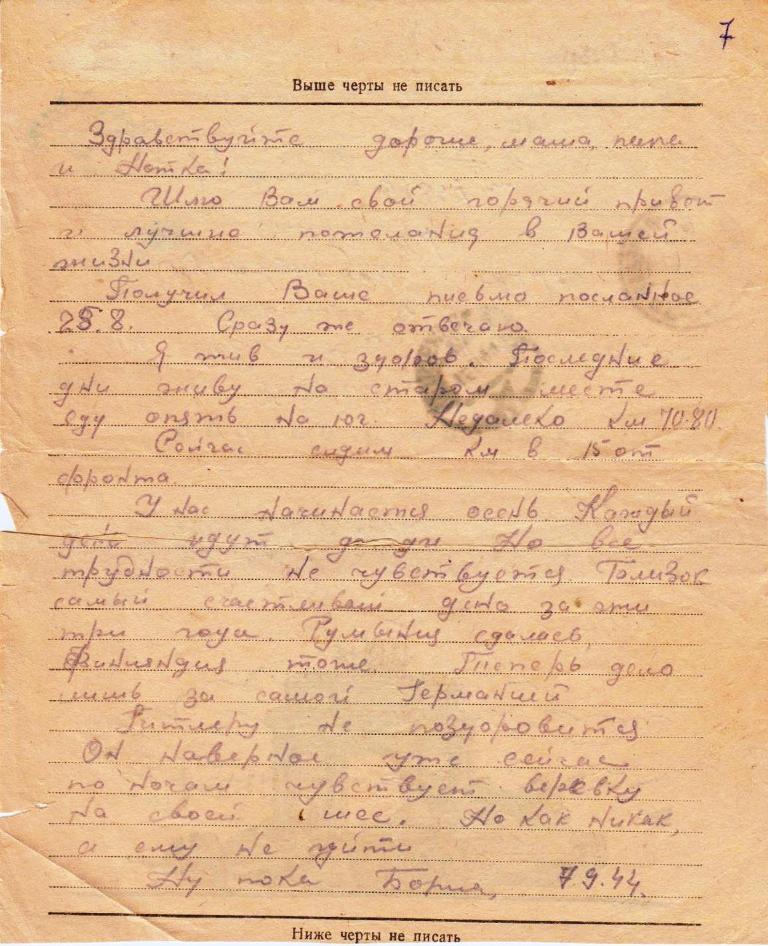 7
Выше черты не писать
Здравствуйте дорогие, мама, папа
и Нотка!
Шлю Вам свой горячий привет
и лучшие пожелания в Вашей
жизни
Получил Ваше письмо посланное
25.8. Сразу же отвечаю.
Я жив и здоров. Последние
дни живу на старом месте
еду опять на юг. Недалеко км 70-80.
Сейчас сидим км в 15 от
фронта.
У нас начинается осень Каждый
день идут дожди Но все
трудности не чувствуется Близок
самый счастливый день за эти
три года. Румыния сдалась,
Финляндия тоже Теперь дело
лишь за самой Германией
Гитлеру не поздоровится
Он наверное уже сейчас
по ночам чувствует веревку
на своей шее. Но как никак,
а ему не уйти
Ну пока Борис, 7 9.44.
Ниже черты не писать